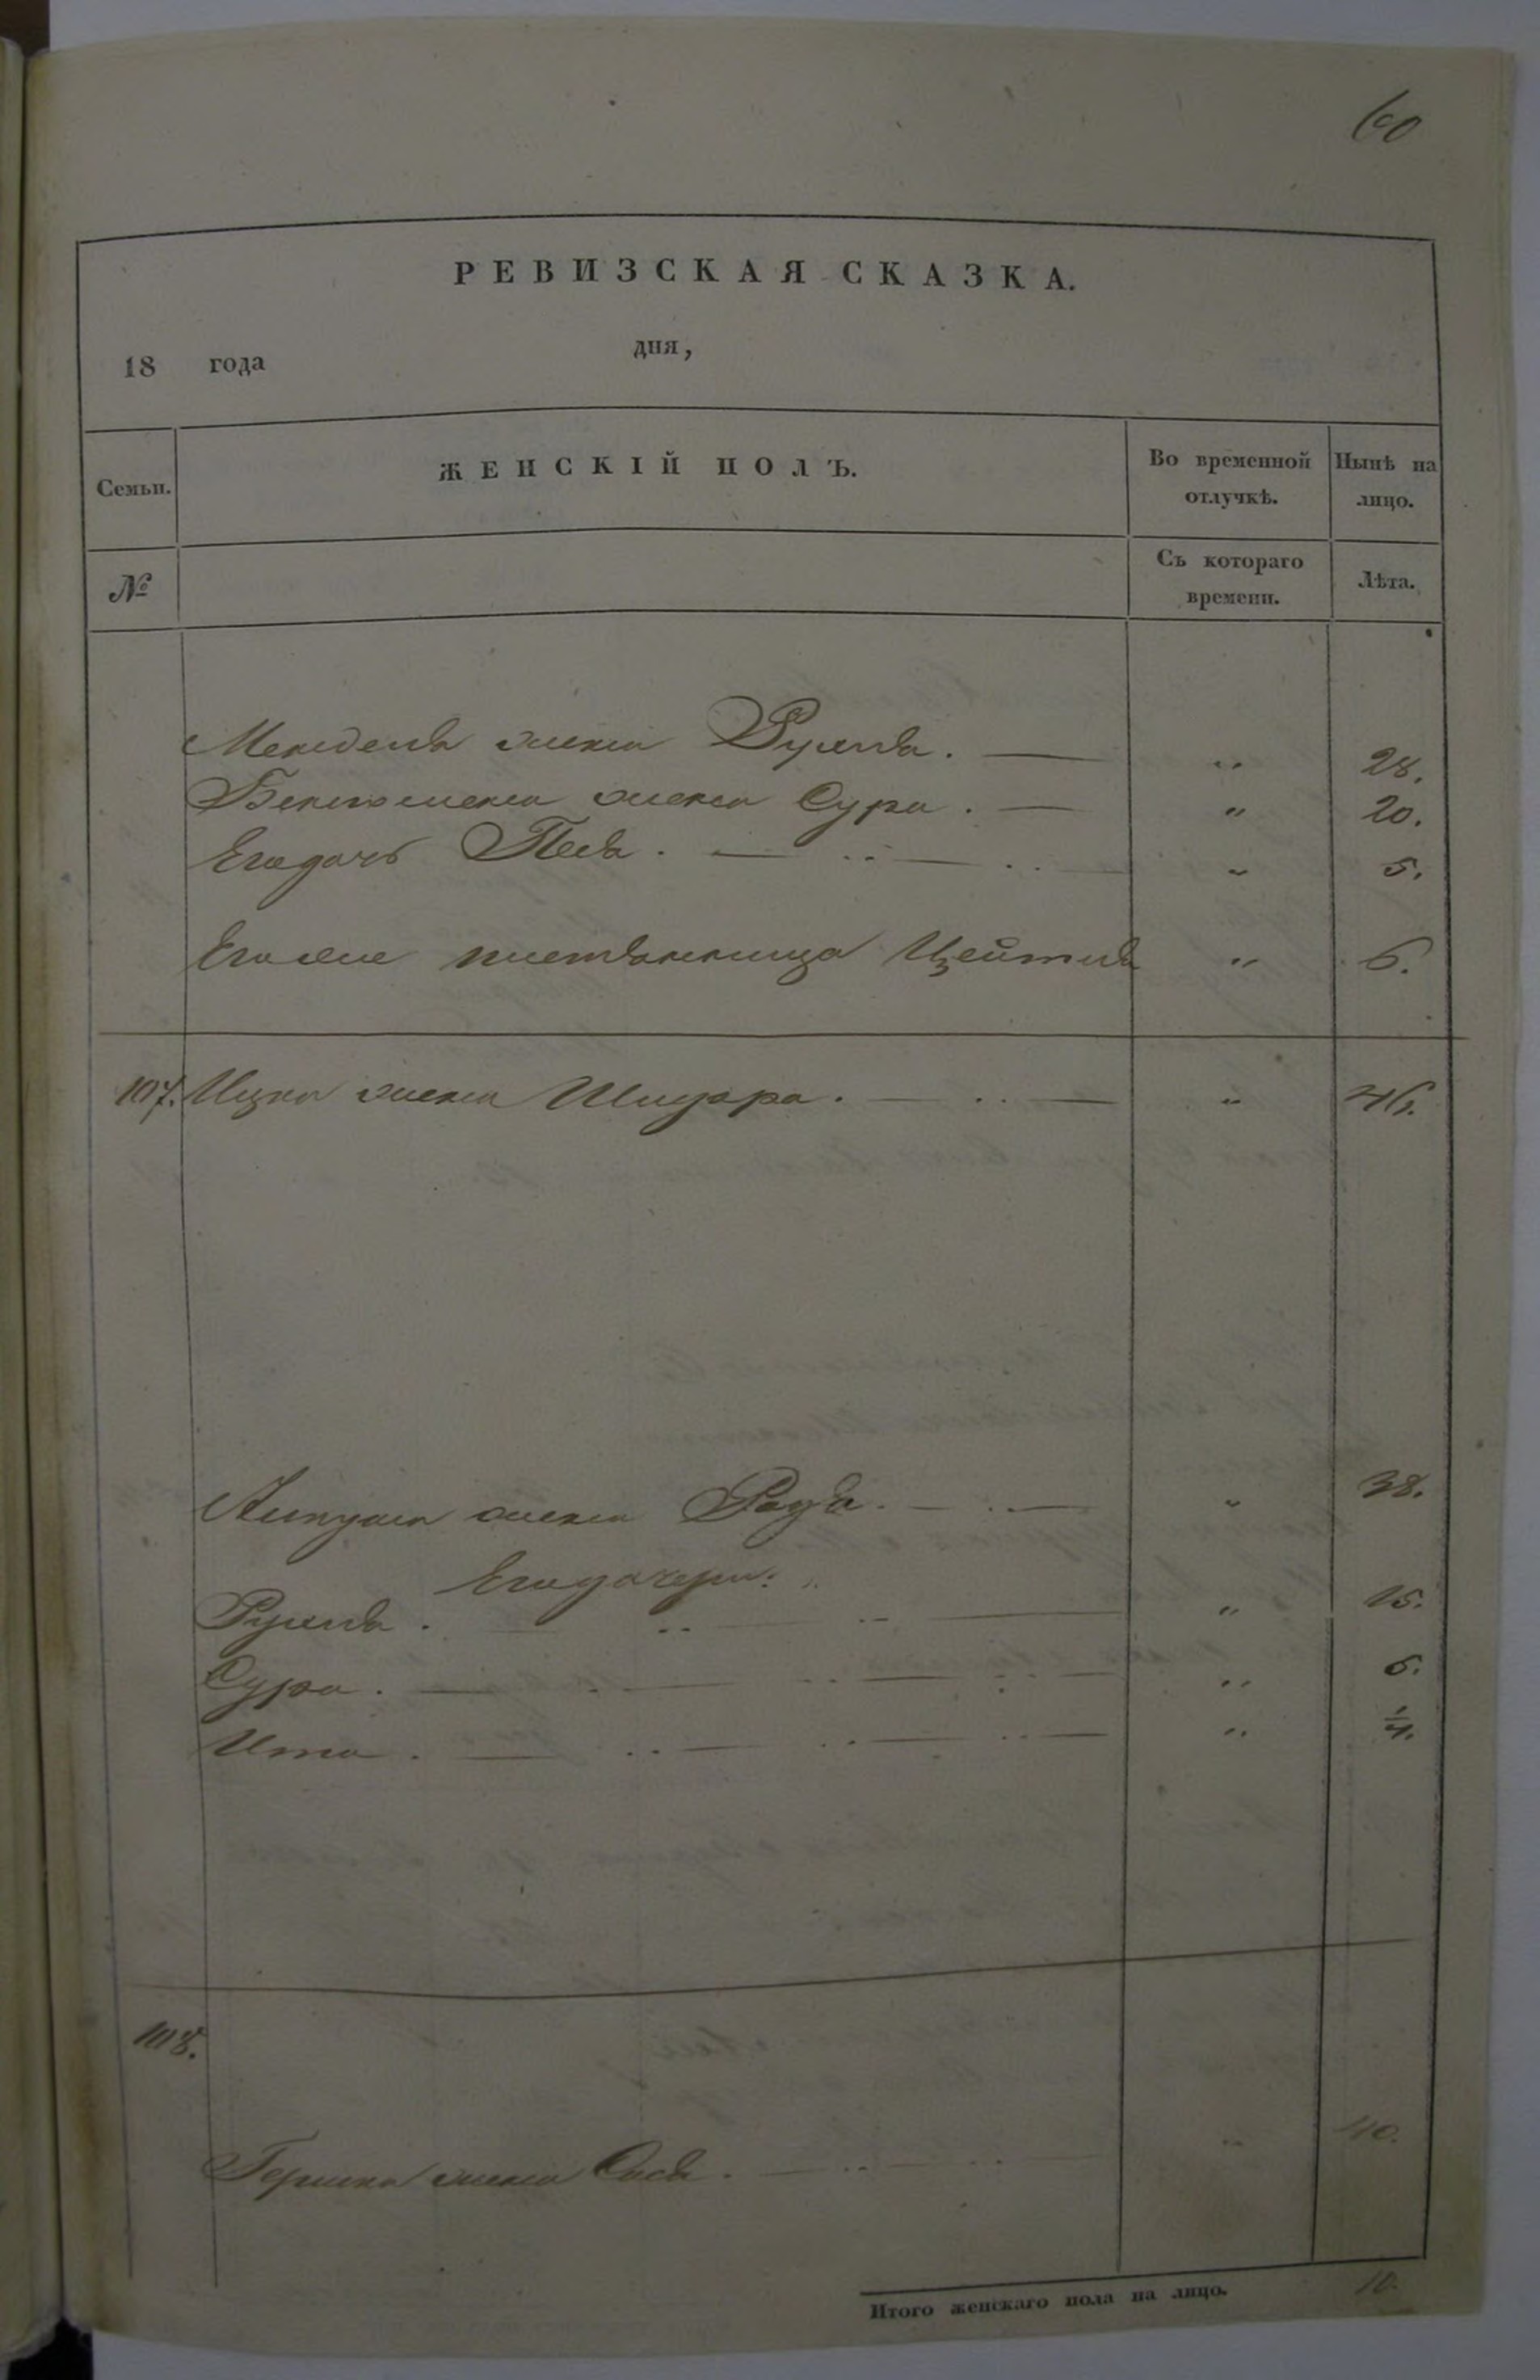 60
РЕВИЗСКАЯ СКАЗКА.
18 года дня,
Семьи. ЖЕНСКІЙ ПОЛЪ. Во временной отлучкѣ. Нынѣ на лицо.
№ Съ котораго времени. Лѣта.
Менделя жена Рухля. — „ 28.
жена Сура. — „ 20.
Егодочь Песя. — „ — „ 5.
Егоже племянница Цейтля „ 6.
107. Ицка жена — „ — „ 46.
жена — „ — „ 38.
Егодочери:
Рухля. „ 15.
Сура. — „ 6.
Ита. — „ 1/4.
108.
Гершка жена Хася. — „ 40.
Итого женскаго пола на лицо. 10.